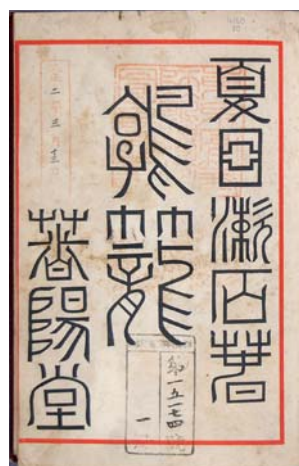 夏目漱石著
鶉籠
春陽堂
第一五一七四號
一